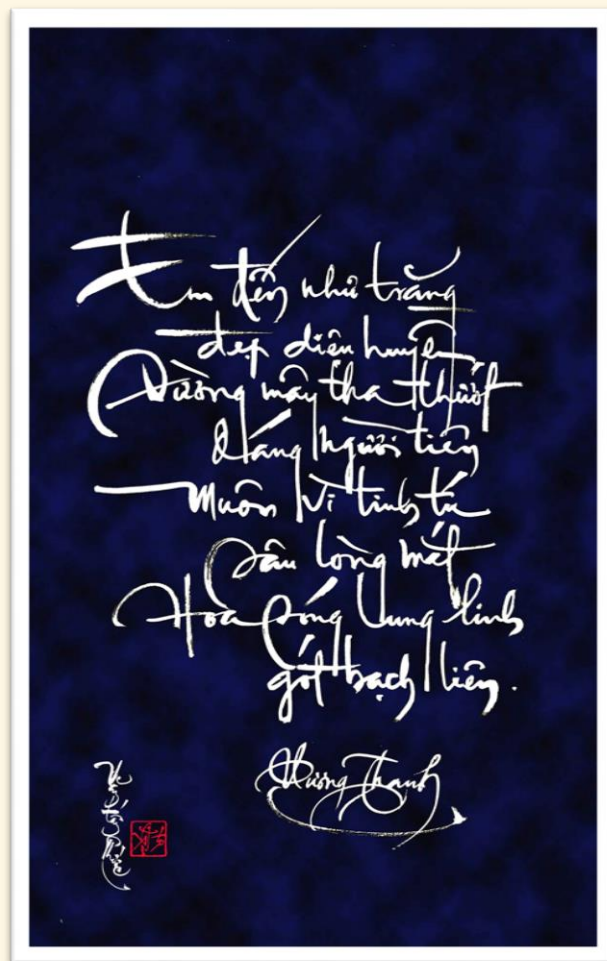 Em đến như trăng
đẹp diễm huyền
Đường mây tha thướt
Dáng người tiên
Muôn vì tinh tú
sâu lòng mắt
Hoa sóng lung linh
gót bạch liên.
Hương Thanh